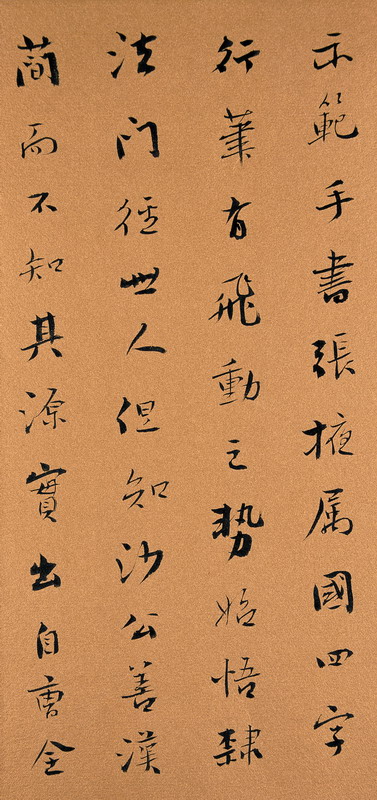 示範手書張掖属國四字
行筆有飛動之勢始悟隸
法门徑世人但知沙公善漢
蕳而不知其源實出自曹全